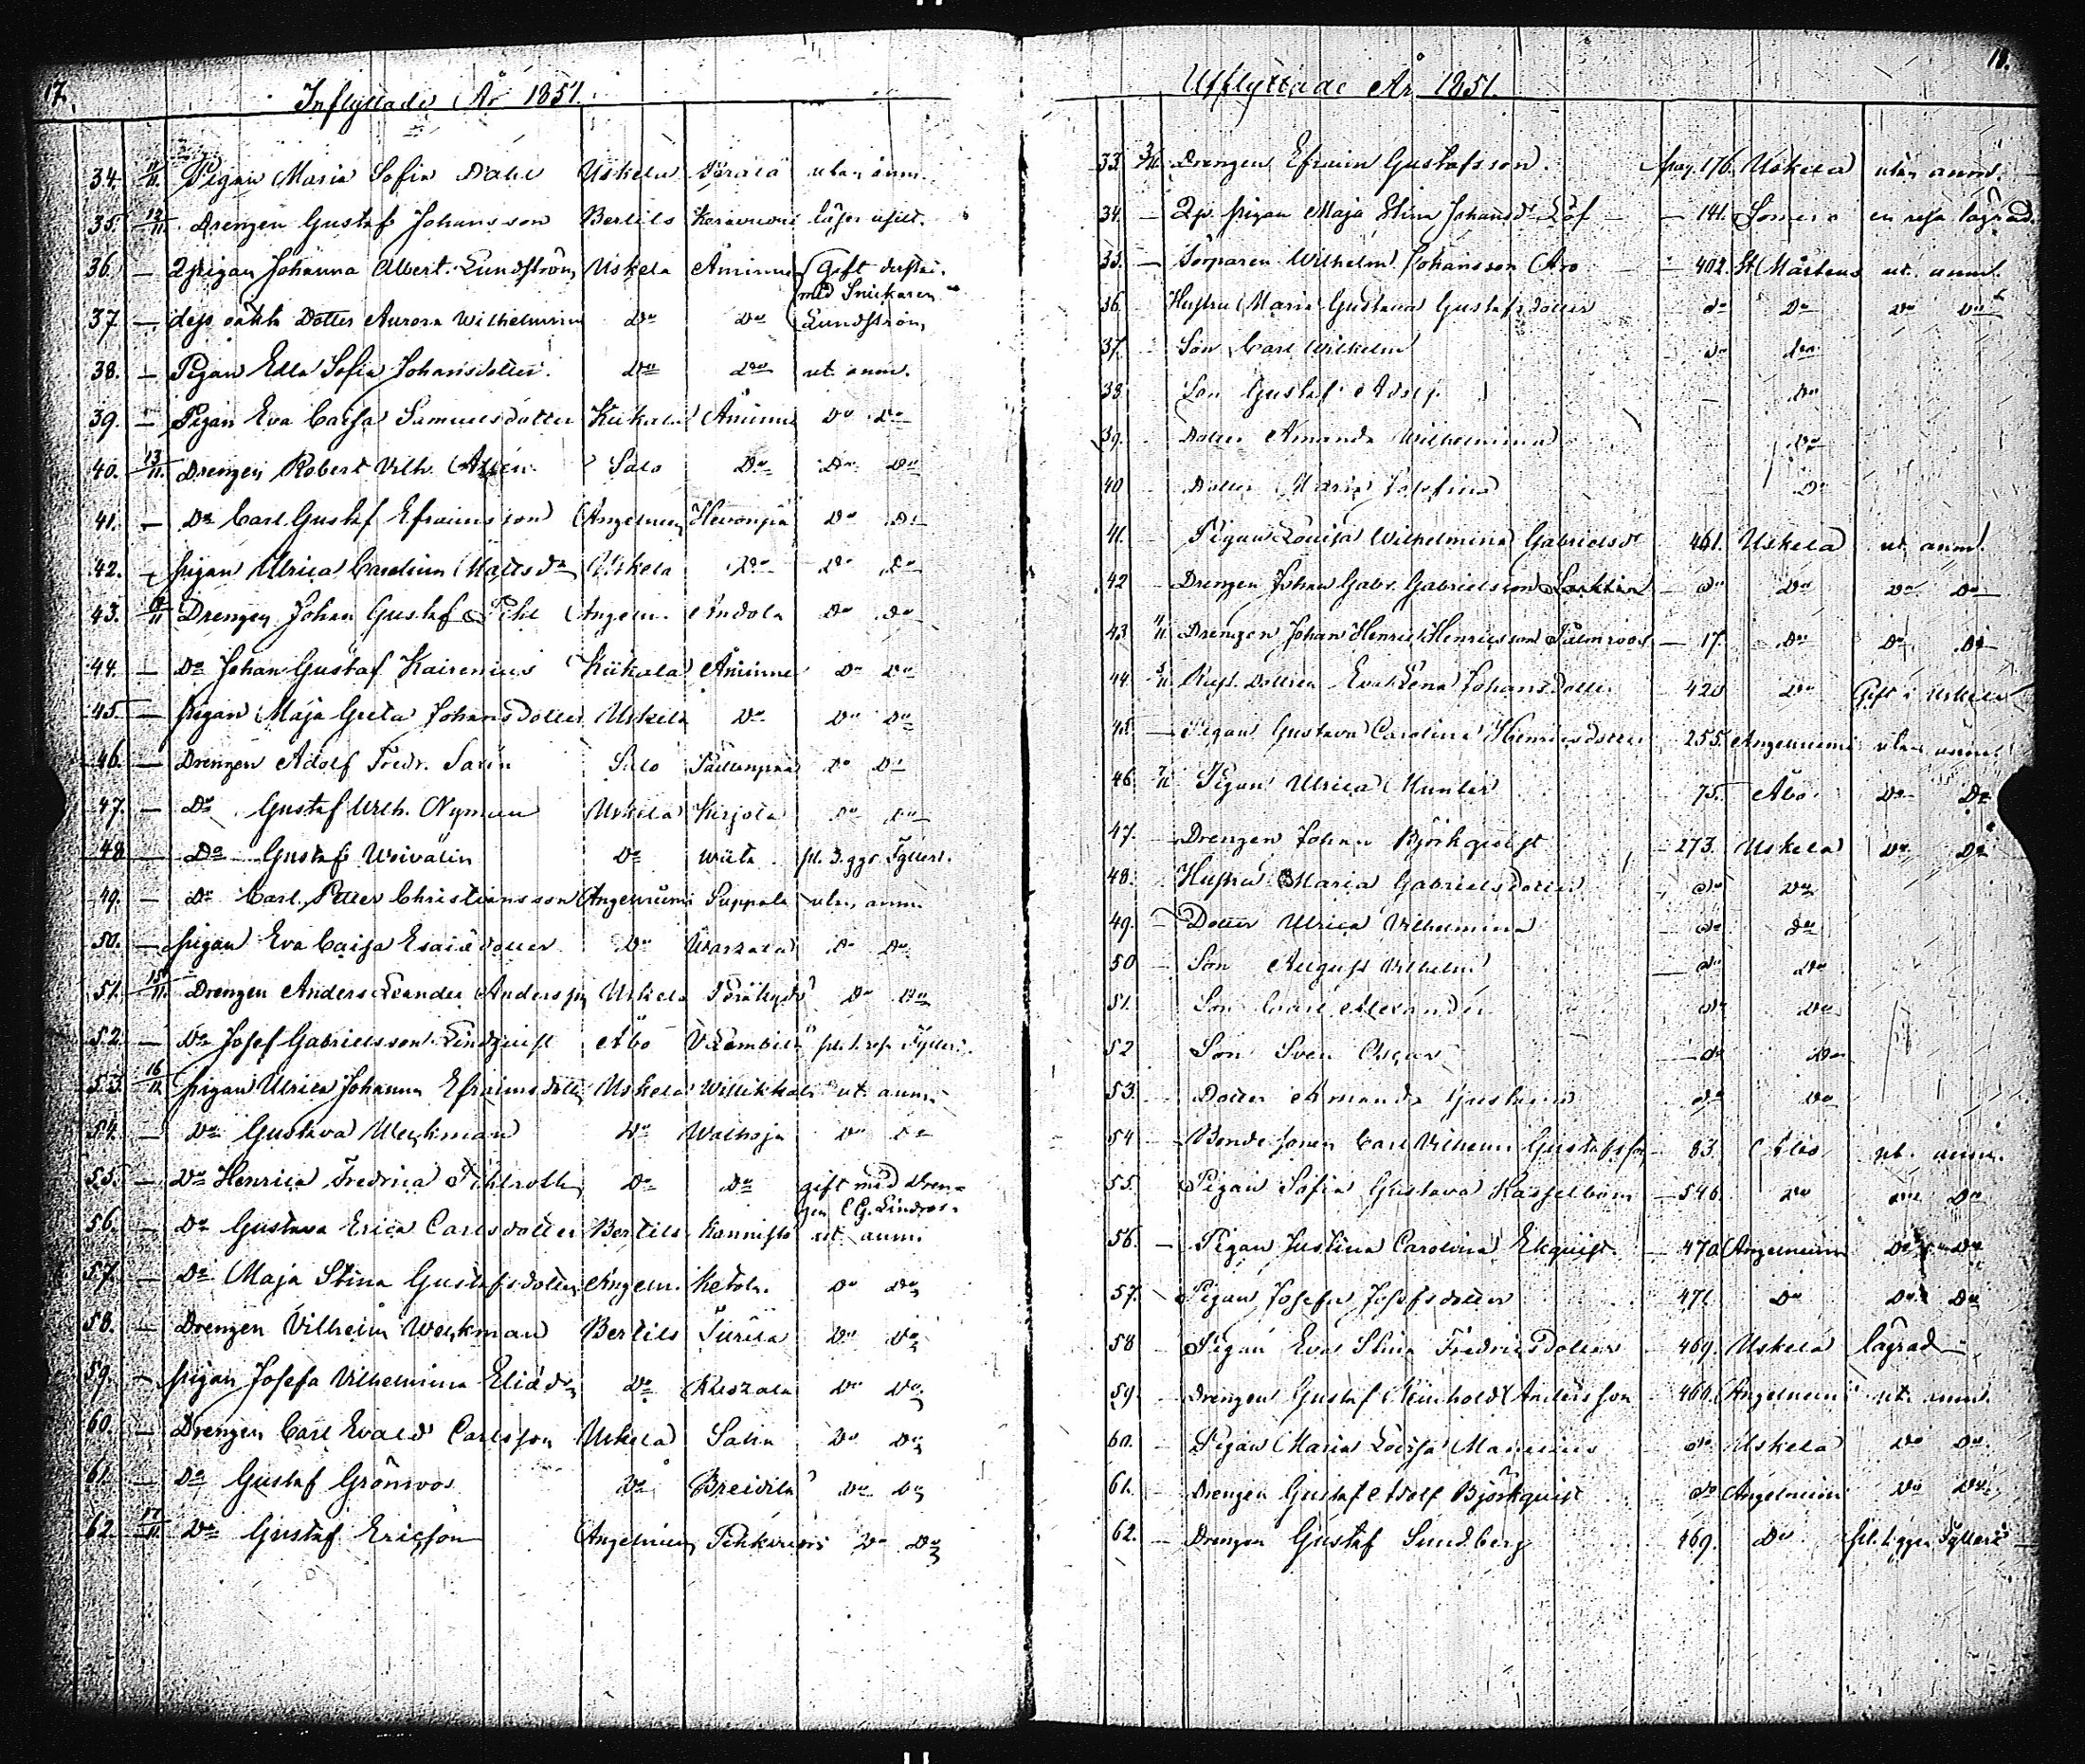 17.
Inflyttade År 1851.
34. 11/11 Pigan Maria Sofia Dahl Uskela utan anm.
35. 12/11 Drengen Gustaf Johansson Bertils
36. — Pigan Johanna Albert. Lundström Uskela Åminne Gift derstäd. med Snickaren
37. — dess oäkta Dotter Aurora Wilhelmina Do Do Lundström
38. — Pigan Edla Sofia Johansdotter Do Do ut anm.
39. — Pigan Eva Caisa Samuelsdotter Kiikala Åminne Do Do
40. 13/11 Drengen Robert Vilh. Salo Do Do Do
41. — Do Carl Gustaf Efraimsson Angelniemi Hevonpää Do Do
42. — pigan Ulrica Carolina Mattsdr Uskela Do Do Do
43. Drengen Johan Gustaf Pihl Angeln. Do Do
44. — Do Johan Gustaf Kairenius Kiikala Åminne Do Do
45. — pigan Maja Greta Johansdotter Uskela Do Do Do
46. — Drengen Adolf Fredr. Salo Do Do
47. — Do Gustaf Wilh. Nyman Uskela Kirjola Do Do
48. — Do Gustaf Do Wiita pl. 3. ggr Fylleri.
49. — Do Carl Petter Christiansson Angelniemi Puppola utan anm.
50. — pigan Eva Caisa Esaiædotter Do Do Do
51. 15/11 Drengen Anders Leander Andersson Uskela Do Do
52. — Do Josef Gabrielsson Lindquist Åbo Fylleri.
53. 16/11 pigan Ulrica Johanna Efraimsdotter Uskela ut anm.
54. — Do Gustava Weckman Do Do Do
55. — Do Henrica Fredrica Do Do gift med Dren-gen C.G. Lindros.
56. — Do Gustava Erica Carlsdotter Bertils ut. anm.
57. — Do Maja Stina Gustafsdotter Angeln. Ketola Do Do
58. — Drengen Vilhelm Weckman Bertils Do Do
59. — pigan Josefa Vilhelmina Do Do Do
60. — Drengen Carl Evald Carlsson Uskela Do Do
61. — Do Gustaf Grönroos Do Do Do
62. 17/11 Do Gustaf Ericsson Angelniemi Do Do
18.
Utflyttade År 1851.
33. Drengen Efraim Gustafsson. pag. 176. Uskela utan anm.
34. — pigan Maja Stina Johansdr Löf — 141. Somero en resa lägrad.
35. — Torparen Wilhelm Johansson Aro — 402. St Mårtens ut. anm.
36. Hustru Maria Gustava Gustafsdotter do Do Do Do
37. Son Carl Wilhelm do Do
38. Son Gustaf Adolf Do
39. Dotter Amanda Wilhelmina Do
40 Dotter Maria Josefina Do
41. Pigan Lovisa Wilhelmina Gabrielsdr 461. Uskela ut anm.
42 Drengen Johan Gabr. Gabrielsson do Do Do Do
43 Drengen Johan Henric Henricsson Palmroos — 17. Do Do Do
44. Eva Lena Johansdotter 420 Do Gift i Uskela
45. — Pigan Gustava Carolina Henricsdotter 255. Angelniemi utan anm.
46. Pigan Ulrica Munter 75. Åbo Do Do
47. — Drengen Johan Björkqvist 273. Uskela Do Do
48. Hustru Maria Gabrielsdotter do Do
49. — Dotter Ulrica Vilhelmina do Do
50 — Son August Vilhelm do Do
51. Son Carl Alexander do Do
52 Son Sven Oscar do Do
53. Dotter Amanda Gustava do Do
54 — Bondesonen Carl Vilhelm Gustafsson 83. Åbo ut. anm.
55. Pigan Sofia Gustava Hasselbom — 546 Do Do Do
56. — Pigan Justina Carolina Ekquist — 470. Angelniemi Do Do
57. Pigan Josefa Josefsdotter 471. Do Do Do
58 Pigan Eva Stina Fredricsdotter 469. Uskela lägrad
59. Drengen Gustaf Reinhold Andersson 460. Angelniemi ut. anm.
60. Pigan Maria Lovisa do Uskela Do Do
61. Drengen Gustaf Adolf Björkquist do Angelniemi Do Do
62. — Drengen Gustaf Sundberg 469. Do Fylleri